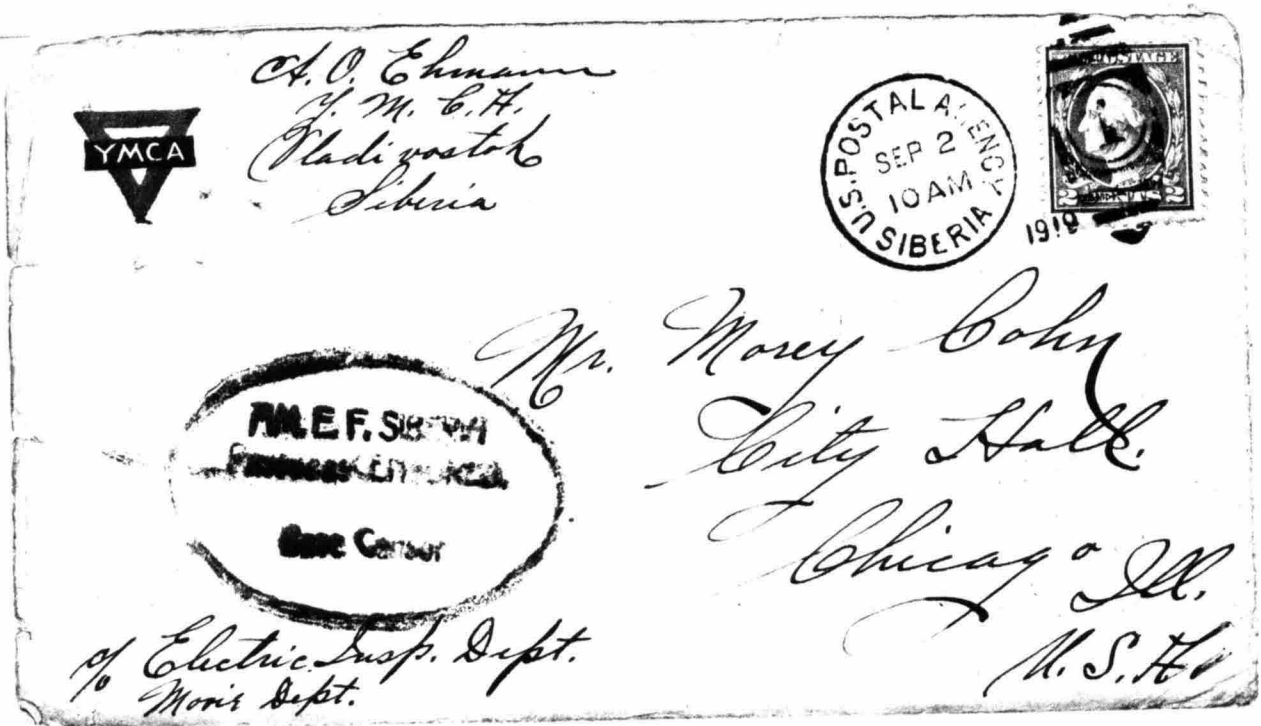 A. O. Ehmann
Y. M. C. A.
Vladivostok
Siberia
YMCA
U.S. POSTAL AGENCY
SEP 2
10 AM
SIBERIA
1919
POSTAGE
2 2
Mr. Morey Cohn
City Hall.
Chicago Ill.
U. S. A.
AM. E. F. SIBERIA
CENSORED
Base Censor
c/o Electric Insp. Dept.
Movie Dept.